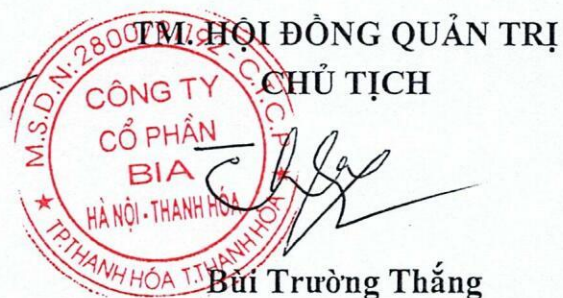 TM. HỘI ĐỒNG QUẢN TRỊ
CHỦ TỊCH
CÔNG TY
CỔ PHẦN
BIA
HÀ NỘI - THANH HÓA
TP.THANH HÓA T.THANH HÓA
Bùi Trường Thắng